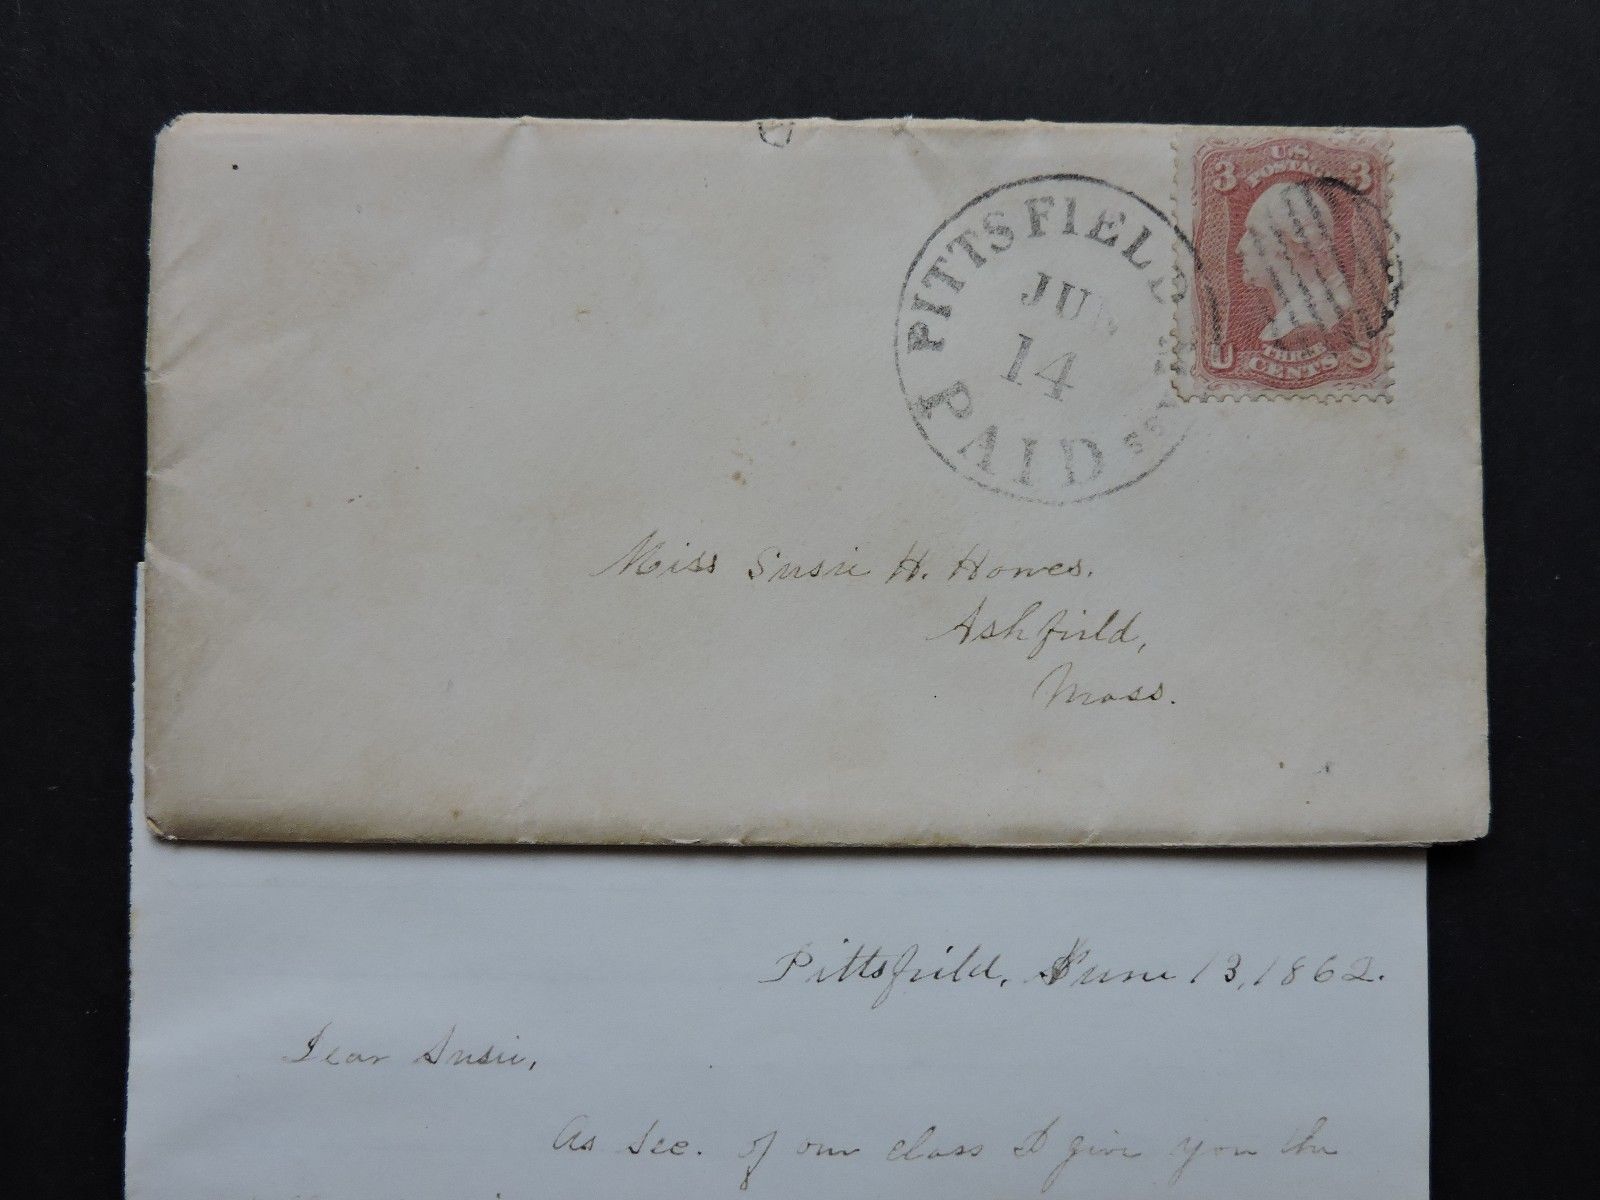 U.S. POSTAGE
3 3
PITTSFIELD
MASS
JUN
14
PAID
U S
THREE
CENTS
Miss Susie H. Howes.
Ashfield,
Mass.
Pittsfield, June 13, 1862.
Dear Susie,
As Sec. of our class I give you the